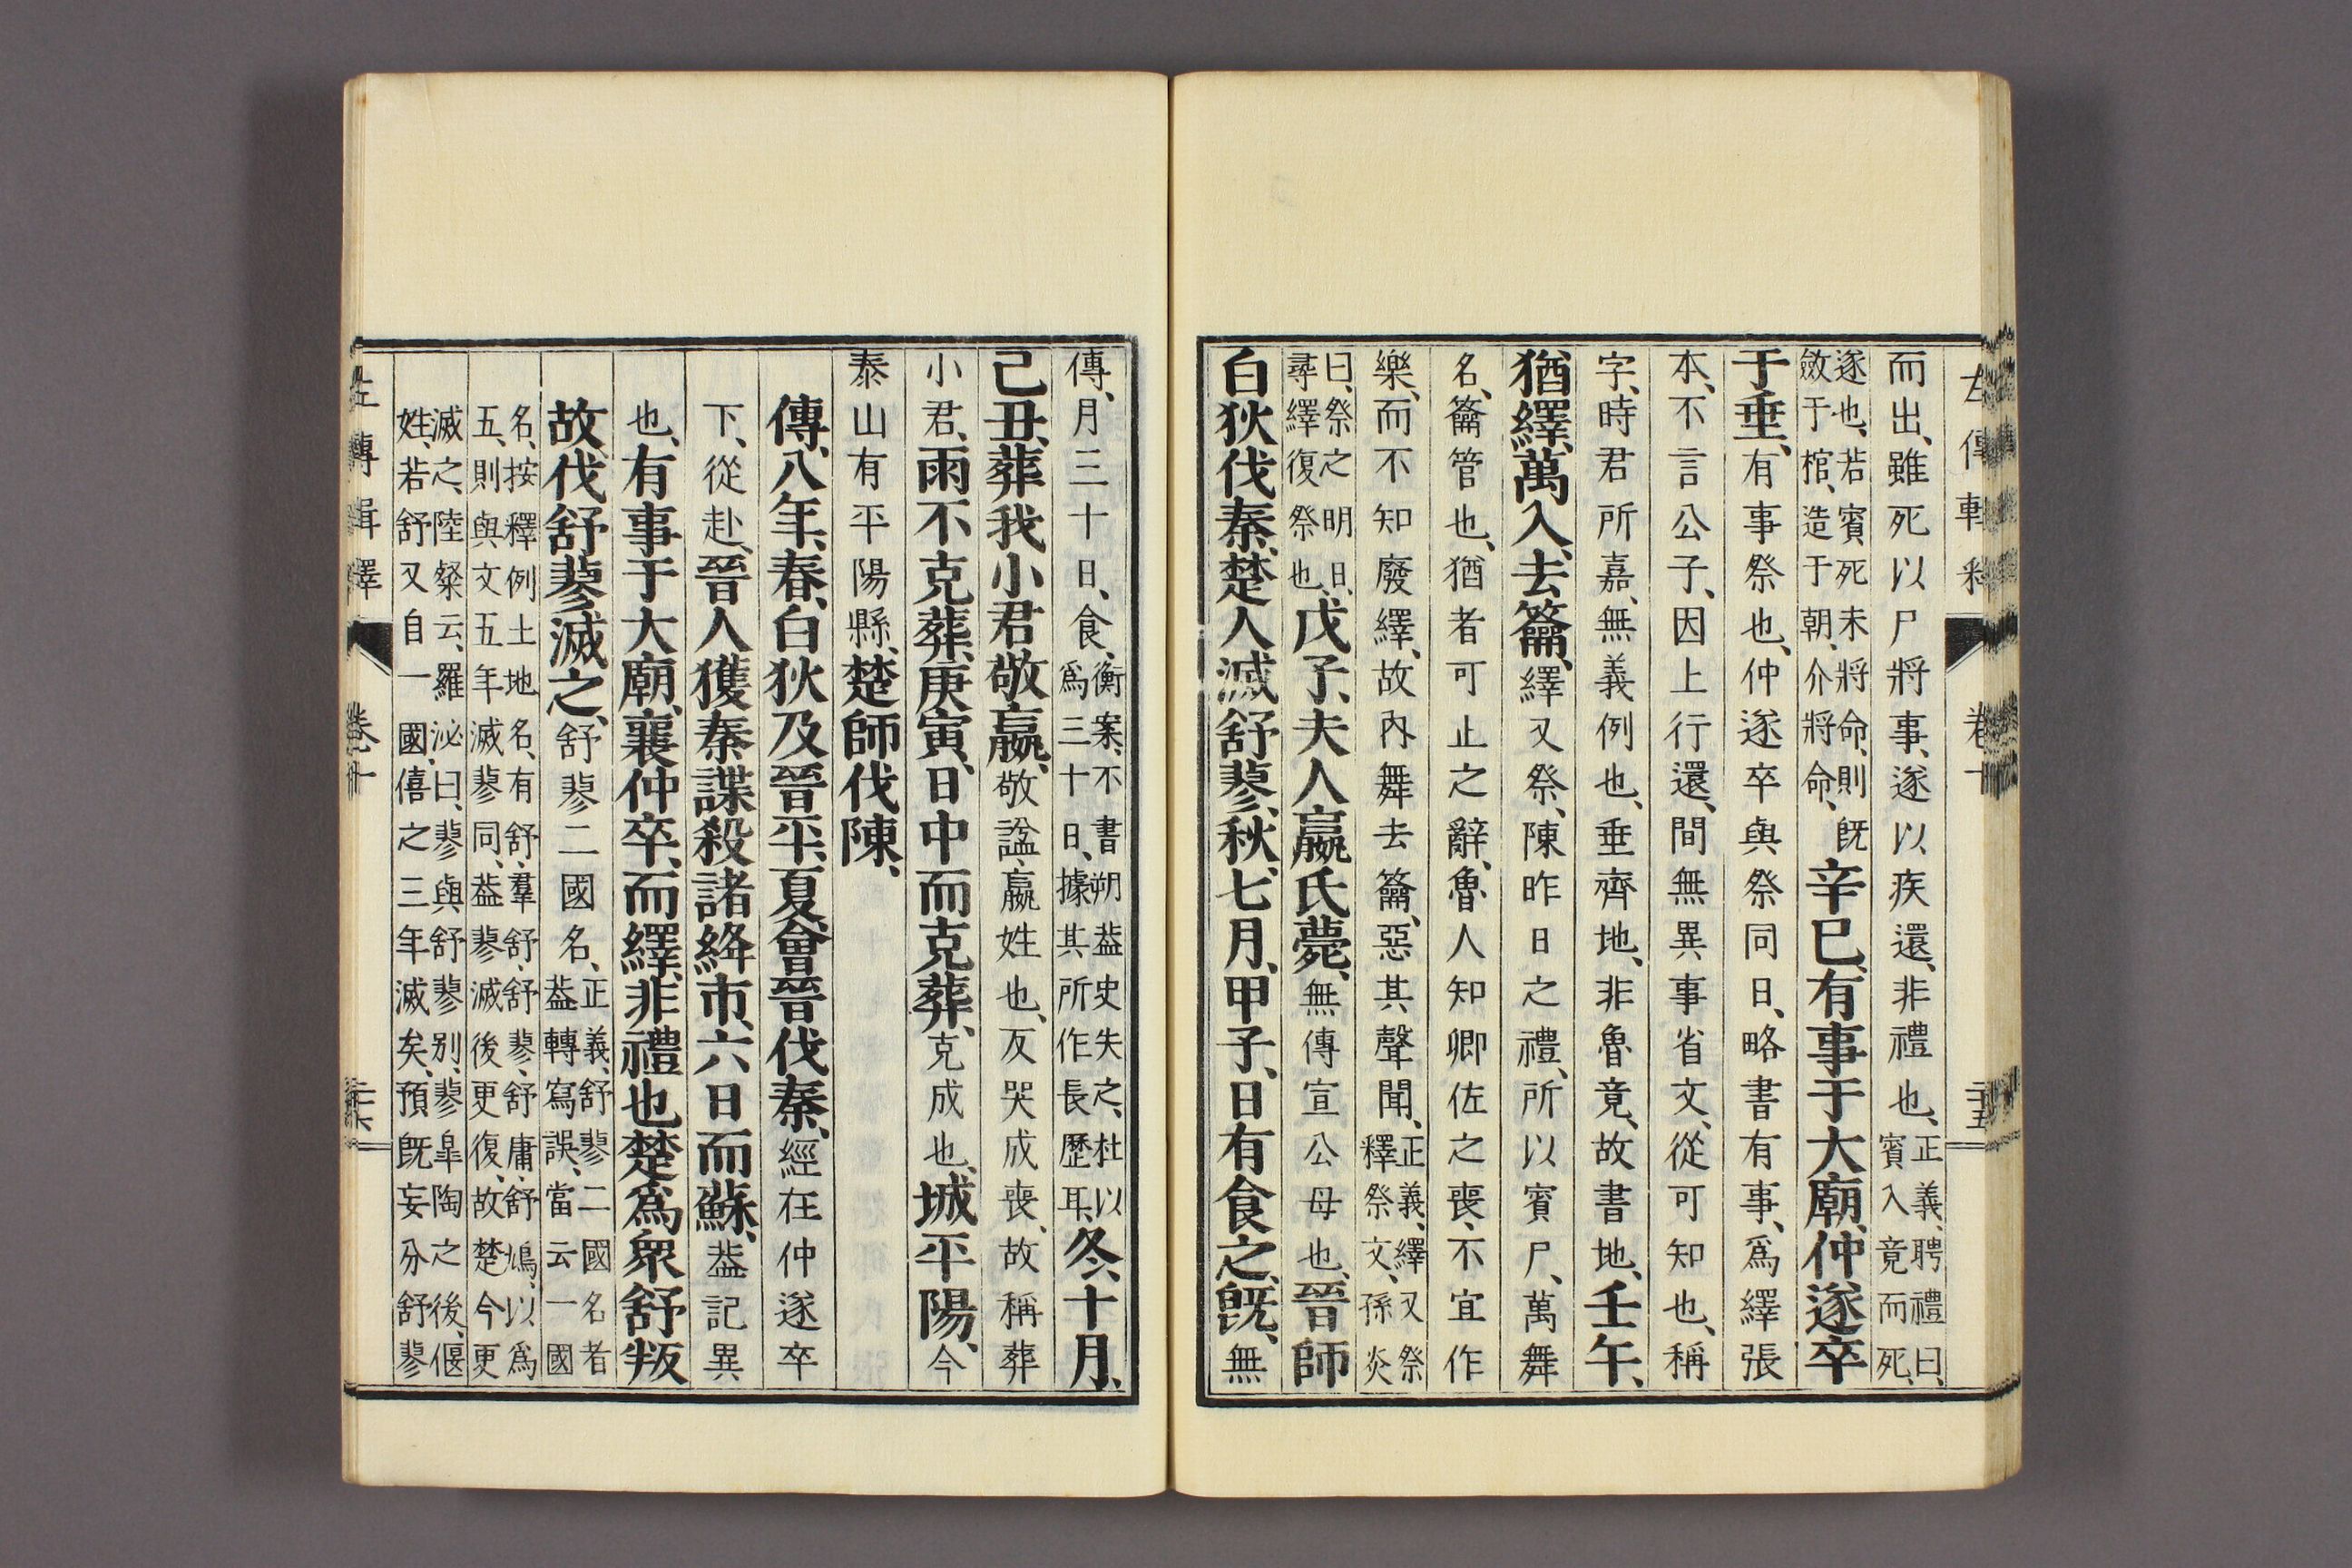 而出、雖死以尸將事、遂以疾還、非禮也、正義、聘禮曰、賓入竟而死、
遂也、若賓死未將命、則旣斂于棺、造于朝、介將命、辛巳、有事于大廟、仲遂卒
于垂、有事祭也、仲遂卒與祭同日、略書有事、爲繹張
本、不言公子、因上行還、間無異事省文、從可知也、稱
字、時君所嘉、無義例也、垂齊地、非魯竟、故書地、壬午、
猶繹、萬入、去籥、繹又祭、陳昨日之禮、所以賓尸、萬舞
名、籥管也、猶者可止之辭、魯人知卿佐之喪、不宜作
樂、而不知廢繹、故內舞去籥、惡其聲聞、正義、繹又祭釋祭文、孫炎
曰、祭之明日、尋繹復祭也、戊子、夫人嬴氏薨、無傳宣公母也、晉師
白狄伐秦、楚人滅舒蓼、秋、七月、甲子、日有食之、旣、無
傳、月三十日、食、衡案、不書朔葢史失之、杜以爲三十日、據其所作長歷耳、冬、十月、
己丑、葬我小君敬嬴、敬謚、嬴姓也、反哭成喪、故稱葬
小君、雨不克葬、庚寅、日中而克葬、克成也、城平陽、今
泰山有平陽縣、楚師伐陳、
傳、八年、春、白狄及晉平、夏、會晉伐秦、經在仲遂卒
下、從赴、晉人獲秦諜、殺諸絳市、六日而蘇、葢記異
也、有事于大廟、襄仲卒、而繹、非禮也、楚爲衆舒叛
故、伐舒蓼、滅之、舒蓼二國名、正義、舒蓼二國名者葢轉寫誤、當云一國
名、按釋例土地名、有舒、羣舒、舒蓼、舒庸、舒鳩、以爲五、則與文五年滅蓼同、葢蓼滅後更復、故楚今更
滅之、陸粲云、羅泌曰、蓼與舒蓼別、蓼皐陶之後、偃姓、若舒又自一國、僖之三年滅矣、預旣妄分舒蓼
左傳輯釋 卷十